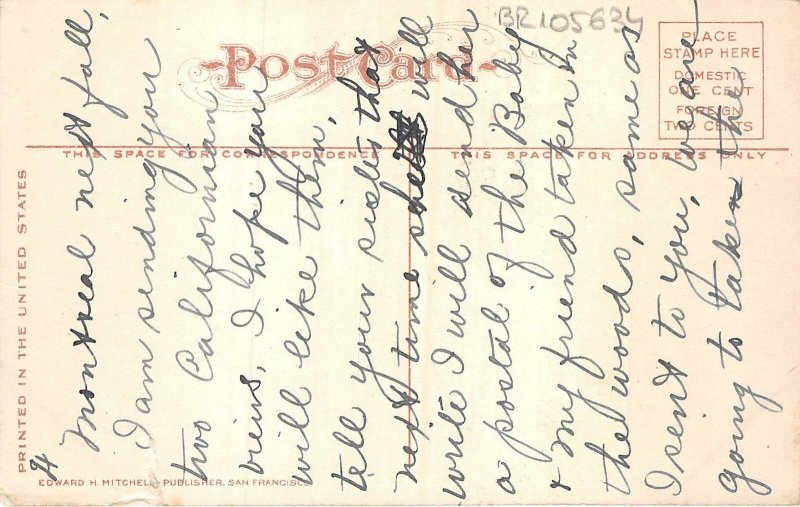 BR105634
Post Card
PLACE
STAMP HERE
DOMESTIC
ONE CENT
FOREIGN
TWO CENTS
THIS SPACE FOR CORRESPONDENCE
THIS SPACE FOR ADDRESS ONLY
PRINTED IN THE UNITED STATES
EDWARD H. MITCHELL, PUBLISHER, SAN FRANCISCO
4
Montreal next fall,
I am sending you
two Californian
views, I hope you
will like them,
tell your sister that
next time she will
write I will send her
a postal of the Baby
+ my friend taken in
the woods, same as
I sent to you, we are
going to taken the